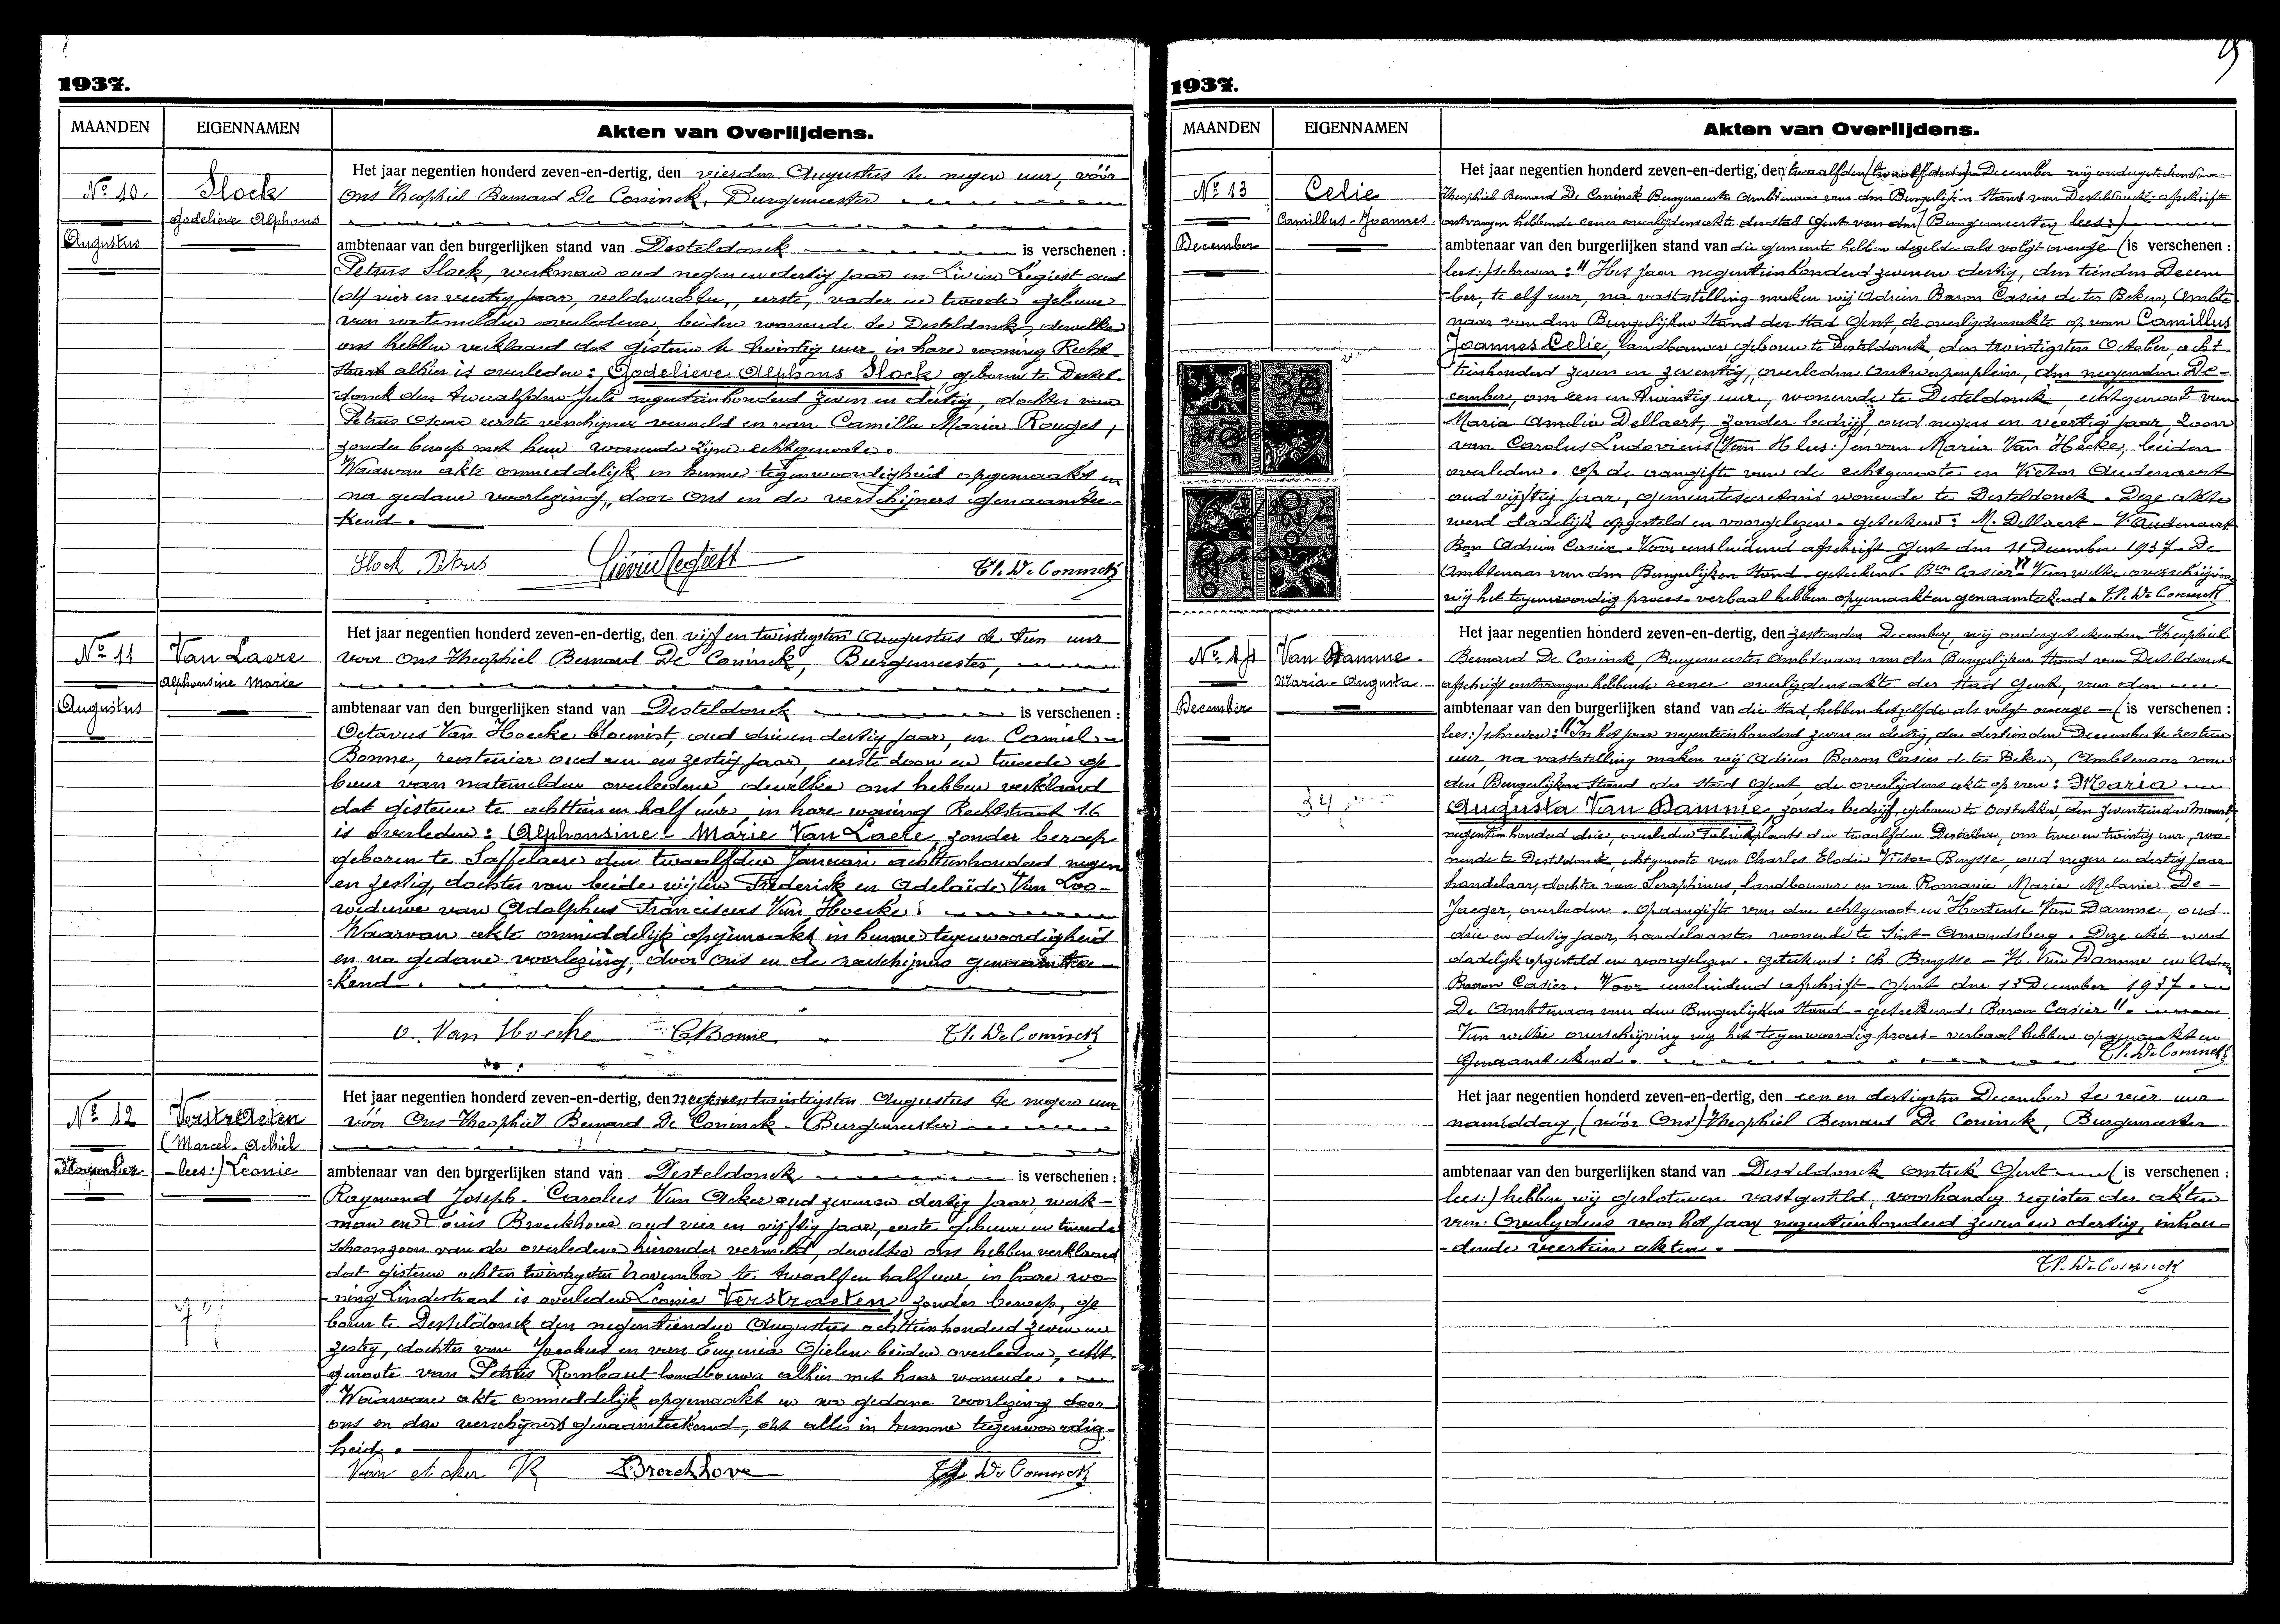 1937.
MAANDEN
EIGENNAMEN
Akten van Overlijdens.
No 10.
Slock
Godelieve Alphons
Augustus
Het jaar negentien honderd zeven-en-dertig, den vierden Augustus te negen uur, vóór
Ons Theophiel Bernard De Coninck, Burgemeester
ambtenaar van den burgerlijken stand van Desteldonck is verschenen :
Petrus Slock, werkman oud negen en dertig jaar en Livien Legiest oud
vier en veertig jaar, veldwachter, eerste, vader en tweede gebuur
van natemelden overledene, beiden wonende te Desteldonck, dewelke
ons hebben verklaard dat gisteren te twintig uur in hare woning Recht-
straat alhier is overleden: Godelieve Alphons Slock geboren te Destel-
donck den twaalfden Juli negentienhonderd zeven en dertig, dochter van
Petrus Oscar eerste verschijner vermeld en van Camilla Maria Rouges,
zonder beroep met hem wonende zijne echtgenoote.
Waarvan akte onmiddelijk in hunne tegenwoordigheid opgemaakt en
na gedane voorlezing, door Ons en de verschijners genaamtee-
kend.
Slock Petrus Liévin Legiest Th. De Coninck
No 11
Van Laere
Alphonsine Marie
Augustus
Het jaar negentien honderd zeven-en-dertig, den vijf en twintigsten Augustus te tien uur
voor Ons Theophiel Bernard De Coninck, Burgemeester,
ambtenaar van den burgerlijken stand van Desteldonck is verschenen :
Octavus Van Hoecke bloemist, oud drie en dertig jaar, en Camiel
Bonne, rentenier oud een en zestig jaar, eerste zoon en tweede ge-
buur van natemelden overledene, dewelke ons hebben verklaard
dat gisteren te achttien en half uur, in hare woning Rechtstraat 16
is overleden: Alphonsine-Marie Van Laere, zonder beroep
geboren te Saffelaere den twaalfden Januari achttienhonderd negen
en zestig, dochter van beide wijlen Frederik en Adelaïde Van Loo-
weduwe van Adolphus Franciscus Van Hoecke.
Waarvan akte onmiddelijk opgemaakt in hunne tegenwoordigheid
en na gedane voorlezing, door Ons en de verschijners genaamtee-
kend.
O. Van Hoecke C Bonne Th. De Coninck
No 12
Verstraeten
(Marcel-Achiel
lees:) Leonie
November
Het jaar negentien honderd zeven-en-dertig, den negenentwintigsten Augustus te negen uur
vóór Ons Theophiel Bernard De Coninck - Burgemeester
ambtenaar van den burgerlijken stand van Desteldonck is verschenen :
Raymond Joseph Carolus Van Acker oud zeven en dertig jaar, werk-
man en Louis Broeckhove oud vier en vijftig jaar, eerste gebuur en tweede
schoonzoon van de overledene hieronder vermeld, dewelke ons hebben verklaard
dat gisteren achten twintigsten November te twaalf en half uur, in hare wo-
ning Lindestraat is overleden Leonie Verstraeten zonder beroep, ge-
boren te Desteldonck den negentienden Augustus achttienhonderd zeven en
zestig, dochter van Jacobus en van Eugenia Gielen beiden overleden, echt-
genoote van Petrus Rombaut landbouwer alhier met haar wonende.
Waarvan akte onmiddelijk opgemaakt en na gedane voorlezing door
ons en den verschijners genaamteekend, dit alles in hunne tegenwoordig-
heid.
Van Acker R Broeckhove Th. De Coninck
1937.
MAANDEN
EIGENNAMEN
Akten van Overlijdens.
No 13
Celie
Camillus-Joannes
December
Het jaar negentien honderd zeven-en-dertig, den twaalfden December wij ondergeteekenden
Theophiel Bernard De Coninck Burgemeester Ambtenaar van den Burgerlijken Stand van Desteldonck afschrift
ontvangen hebbende eener overlijdensakte der stad Gent van den (Burgemeester lees:)
ambtenaar van den burgerlijken stand van die gemeente hebben dezelfde als volgt overge- (is verschenen :
lees:) schreven: "Het jaar negentienhonderd zeven en dertig, den tienden Decem-
ber, te elf uur, na vaststelling maken wij Adrien Baron Casier de ter Beken, Ambte-
naar van den Burgerlijken Stand der stad Gent, de overlijdensakte op van Camillus
Joannes Celie, landbouwer geboren te Desteldonck den twintigsten October acht
tienhonderd zeven en zeventig, overleden Antwerpenplein, den negenden De-
cember, om een en twintig uur, wonende te Desteldonck, echtgenoot van
Maria Amelia Dellaert, zonder bedrijf oud negen en veertig jaar, zoon
van Carolus Ludovicus (Van H lees:) en van Maria Van Hecke, beiden
overleden. Op de aangifte van de echtgenoote en Victor Audenaert
oud vijftig jaar, gemeentesecretaris wonende te Desteldonck. Deze akte
werd dadelijk opgesteld en voorgelezen - geteekend: M. Dellaert - V. Audenaert
Bon Adrien Casier. Voor eensluidend afschrift - Gent den 11 December 1937 - De
Ambtenaar van den Burgerlijken Stand - geteekend - Bon Casier" Van welke overschrijving
wij het tegenwoordig proces-verbaal hebben opgemaakt en genaamteekend. Th. De Coninck
No 14
Van Damme
Maria-Augusta
December
Het jaar negentien honderd zeven-en-dertig, den zestienden December, wij ondergeteekenden Theophiel
Bernard De Coninck, Burgemeester Ambtenaar van den Burgerlijken Stand van Desteldonck
afschrift ontvangen hebbende eener overlijdensakte der stad Gent, van den
ambtenaar van den burgerlijken stand van die stad, hebben hetzelfde als volgt overge- (is verschenen :
lees:) schreven: "In het jaar negentienhonderd zeven en dertig, den dertienden December te zestien
uur, na vaststelling maken wij Adrien Baron Casier de ter Beken, Ambtenaar van
den Burgerlijken Stand der Stad Gent, de overlijdens akte op van: Maria
Augusta Van Damme, zonder bedrijf, geboren te Oostakker, den zeventienden Maart
negentienhonderd drie, overleden Fabriekplaats den twaalfden December, om twee en twintig uur, wo-
nende te Desteldonck, echtgenoote van Charles Elodie Victor Buysse, oud negen en dertig jaar
handelaar, dochter van Seraphinus, landbouwer en van Romanie Marie Melanie De-
Jaeger, overleden. Op aangifte van den echtgenoot en Hortense Van Damme, oud
drie en dertig jaar, handelaarster wonende te Sint-Amandsberg. Deze akte werd
dadelijk opgesteld en voorgelezen. geteekend: Ch Buysse - H. Van Damme en Adrien
Baron Casier. Voor eensluidend afschrift - Gent den 13 December 1937.
De Ambtenaar van den Burgerlijken Stand - geteekend: Baron Casier".
Van welke overschrijving wij het tegenwoordig proces-verbaal hebben opgemaakt en
genaamteekend. Th. De Coninck
Het jaar negentien honderd zeven-en-dertig, den een en dertigsten December te vier uur
namiddag, (vóór Ons) Theophiel Bernard De Coninck, Burgemeester
ambtenaar van den burgerlijken stand van Desteldonck omtrek Gent (is verschenen :
lees:) hebben wij gesloten en vastgesteld, voorhandig register der akten
van Overlijdens voor het jaar negentienhonderd zeven en dertig, inhou-
dende veertien akten.
Th. De Coninck